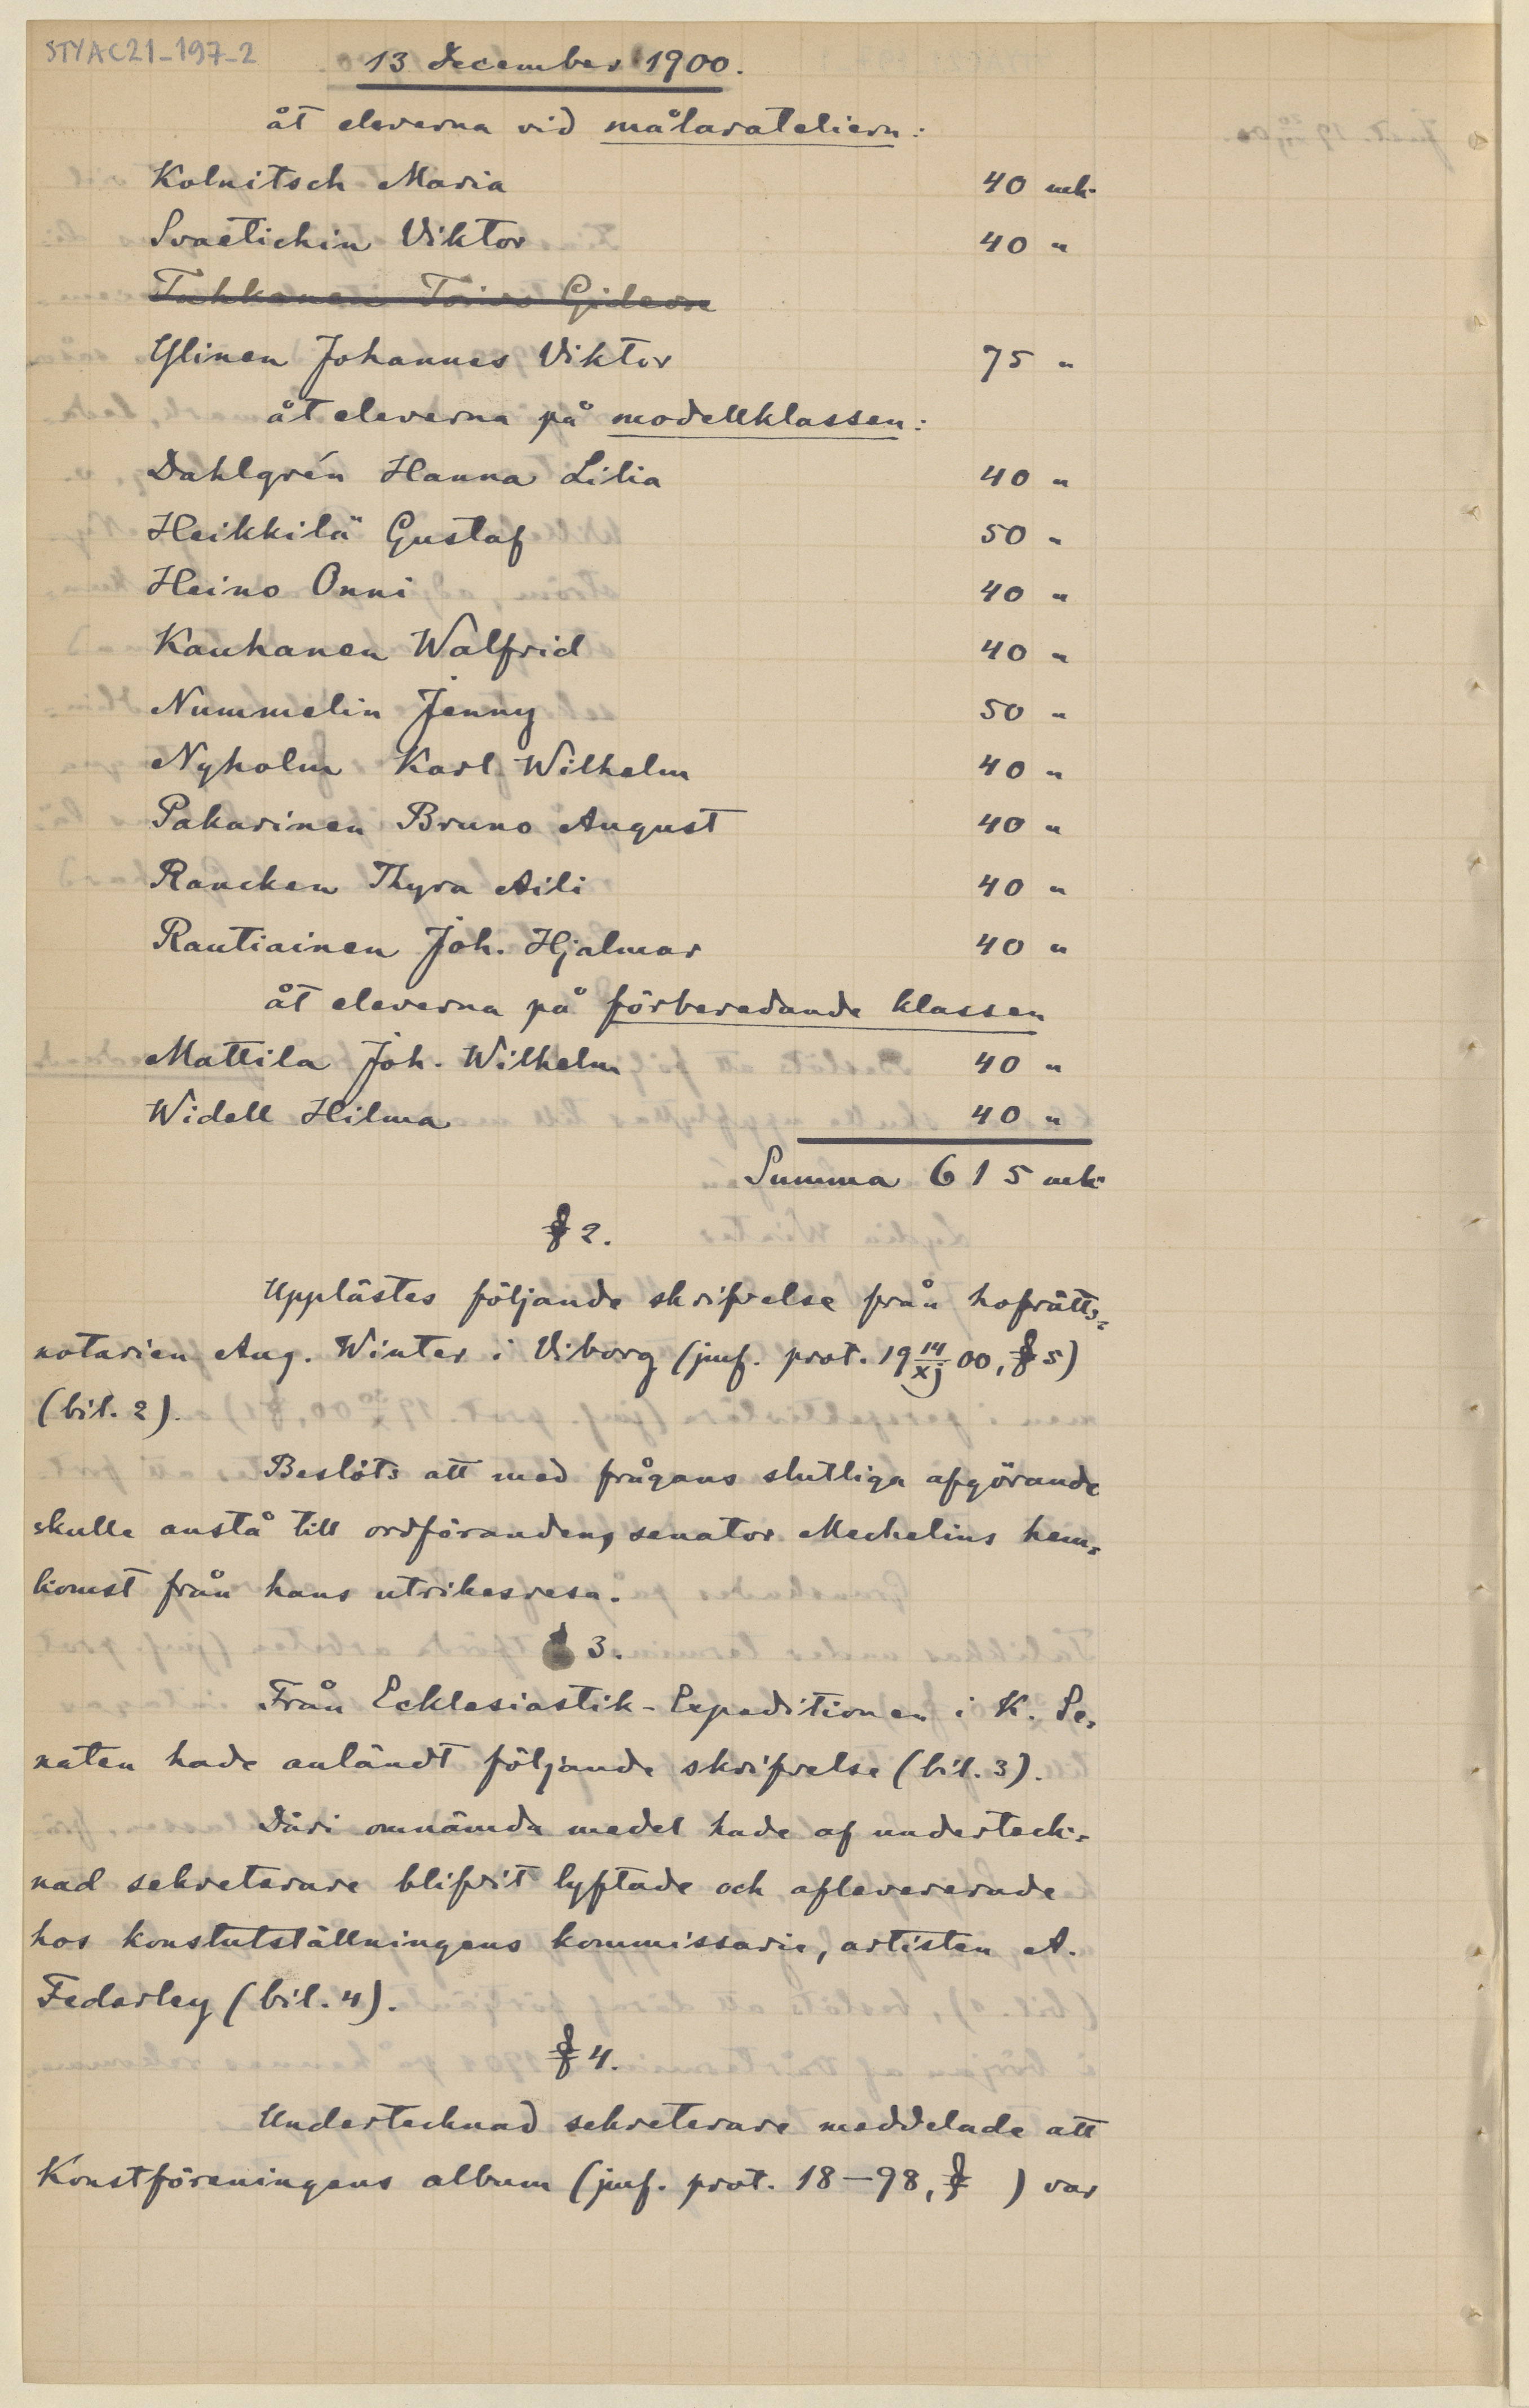 STYAC21-197-2
13 December 1900.
åt eleverna vid målarateliern:
Kolnitsch Maria 40 mk
Svaetichin Viktor 40 "
Tuhkanen Toivo Gideon
Ylinen Johannes Viktor 75 "
åt eleverna på modellklassen:
Dahlgrén Hanna Lilia 40 "
Heikkilä Gustaf 50 "
Heino Onni 40 "
Kauhanen Walfrid 40 "
Nummelin Jenny 50 "
Nyholm Karl Wilhelm 40 "
Pakarinen Bruno August 40 "
Rancken Thyra Aili 40 "
Rautiainen Joh. Hjalmar 40 "
åt eleverna på förberedande klassen
Mattila Joh. Wilhelm 40 "
Widell Hilma 40 "
Summa 615 mk
§ 2.
Upplästes följande skrifvelse från hofrätts=
notarien Aug. Winter i Viborg (jmf. prot. 19 14/XI 00, § 5)
(bil. 2).
Beslöts att med frågans slutliga afgörande
skulle anstå till ordföranden, senator Mechelins hem=
komst från hans utrikesresa.
§ 3.
Från Ecklesiastik-Expeditionen i K. Se=
naten hade anländt följande skrifvelse (bil. 3).
Däri omnämda medel hade af underteck=
nad sekreterare blifvit lyftade och aflevererade
hos konstutställningens kommissarie, artisten A.
Federley (bil. 4).
§ 4.
Undertecknad sekreterare meddelade att
Konstföreningens album (jmf. prot. 18—98, § ) var